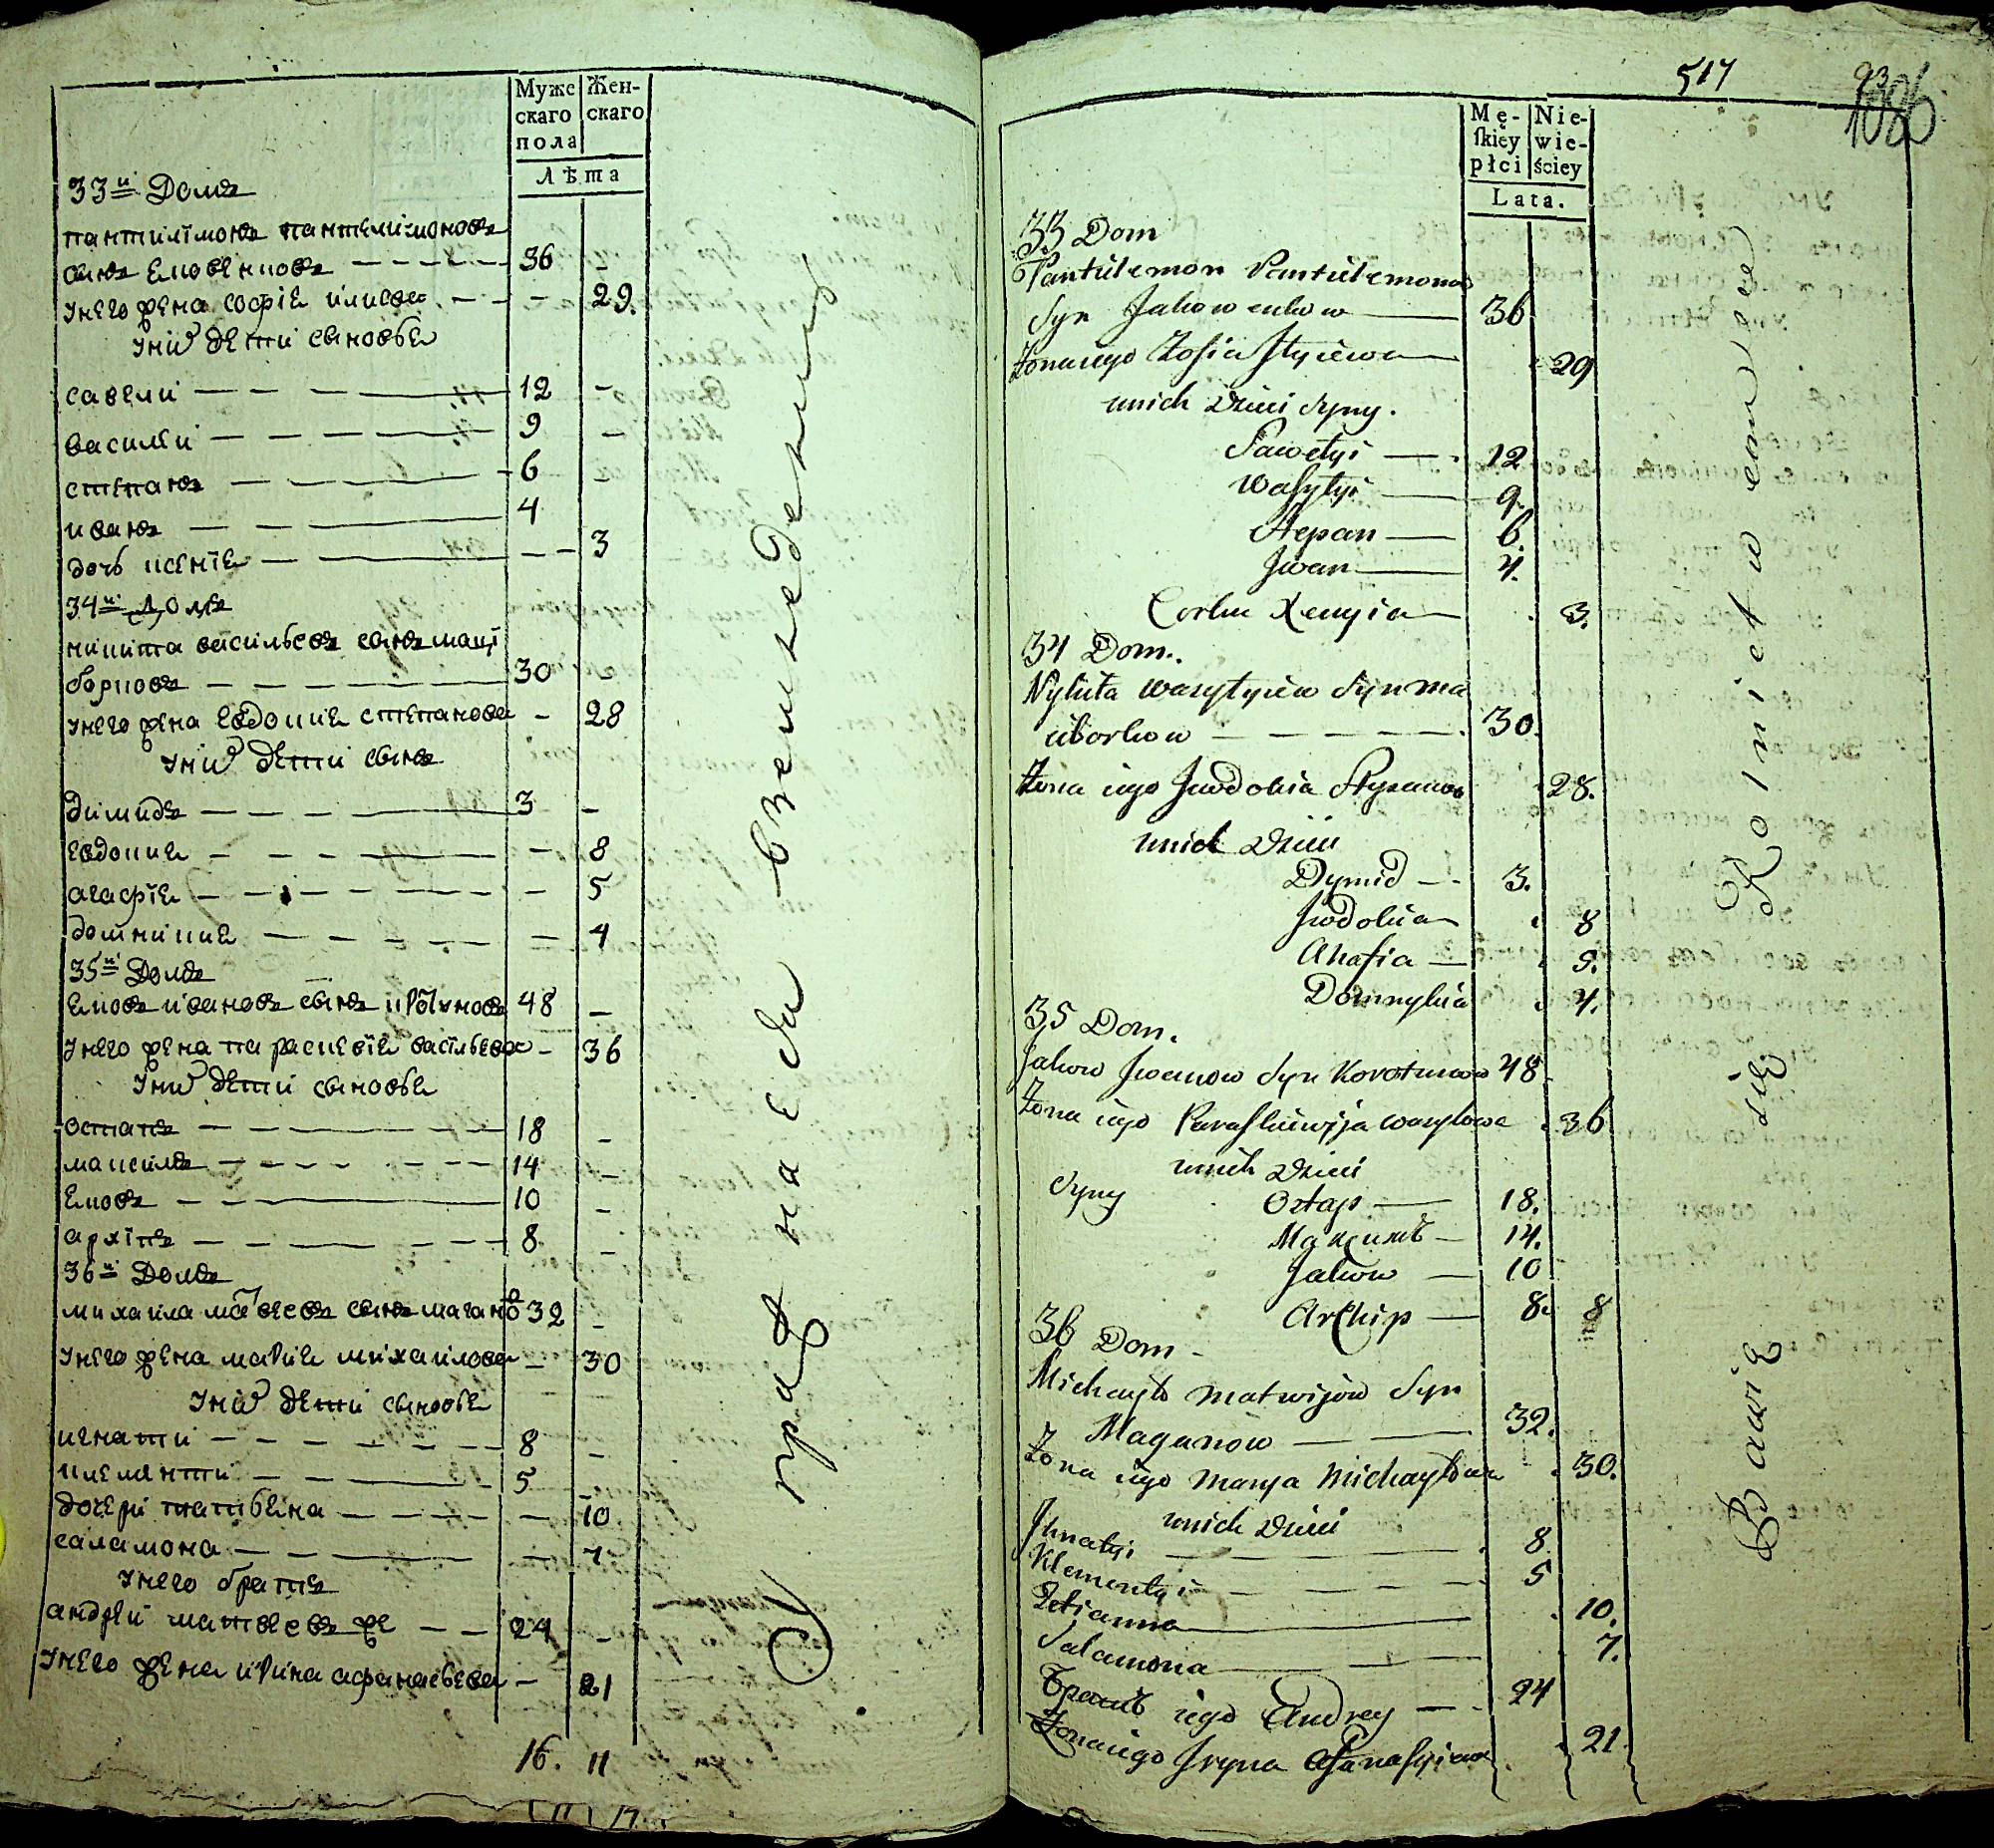 Муже
скаго
пола
Жен-
скаго
Лѣта
33й Домъ
пантилимонъ пантелимоновъ
сынъ яковенковъ 36 -
унего жена софія илиева - 29.
унихъ дети сыновья
савели 12 -
василей 9 -
степанъ 6 -
иванъ 4
дочь ксенїя - 3
34й Домъ
никита васильевъ сынъ маці
борковъ 30 -
унего жена евдокия степанова - 28
унихъ дети сынъ
димидъ 3 -
евдокия - 8
агафїя - 5
домникия - 4
35й Домъ
яковъ ивановъ сынъ коротковъ 48 -
унего жена параскевїя васильева - 36
унихъ дети сыновья
остапъ 18 -
максимъ 14 -
яковъ 10 -
архїпъ 8 -
36й Домъ
михаила матвеевъ сынъ магано 32 -
унего жена мария михаилова - 30
унихъ дети сыновья
игнатий 8 -
климентий 5 -
дочери татьяна - 10
саламона - 7
унего братъ
андрей матвеевъ же 24 -
унего жена ирина афанасьева - 21
16. 11
Упражнается взенледении
517
93
1086
Mę-
ſkiey
płci
Nie-
wie-
ściey
Lata.
33 Dom
Pantulemon Pantulemonow
Syn Jakowenkow 36
Żona iego Zofia Jlyiewa 29
unich Dzieci Syny.
Sawelyi 12
Wasylyi 9.
Stepan 6.
Jwan 4.
Corka Xenyia 3.
34 Dom.
Nykita Wasylyiew Syn Ma
ciborkow 30.
Żona iego Jwdokia Stepanow 28.
unich Dzieci
Dymid 3.
Jwdokia 8
Ahafia 5.
Domnykia 4.
35 Dom.
Jakow Jwanow Syn Korotkow 48.
Żona iego Paraskiewija Wasylowa 36
unich Dzieci
Syny Ostap 18.
Максимъ 14.
Jakow 10
Archip 8. 8
36 Dom
Michayło Matwijow Syn
Maganow 32.
Żona iego Marya Michayłowa 30.
unich Dzieci
Jhnatyi 8
Klementyi 5
Tetianna 10.
Salamona 7.
Братъ iego Andrey 24
Żona iego Jryna Afanasyiewa 21.
Bawie się Rolnictwem